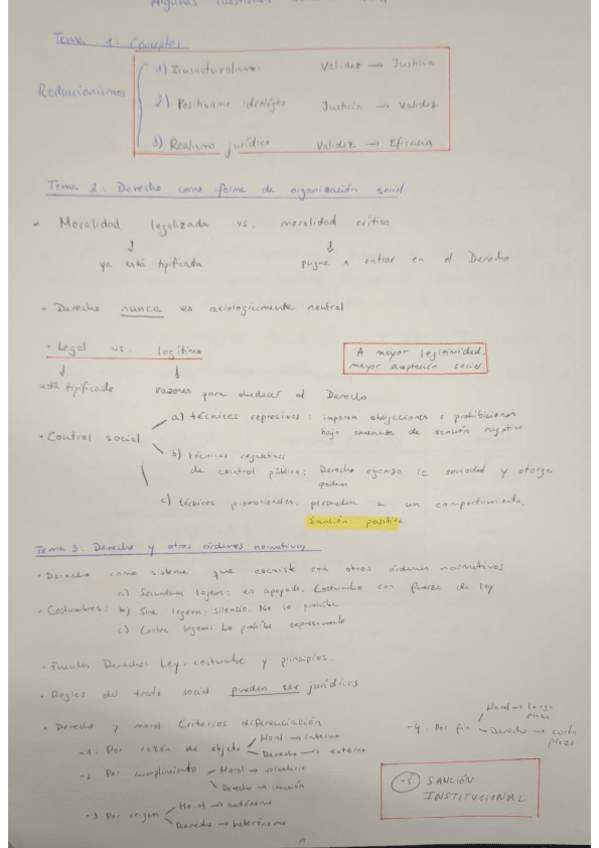 Algunas cuestiones
Tema 1: Conceptos
Reduccionismos
1) Iusnaturalismo: Validez → Justicia
2) Positivismo ideológico Justicia → Validez
3) Realismo jurídico Validez → Eficacia
Tema 2: Derecho como forma de organización social
• Moralidad legalizada vs. moralidad crítica
↓ ↓
ya está tipificada pugna x entrar en el Derecho
• Derecho nunca es axiológicamente neutral
• Legal vs. legítimo
A mayor legitimidad,
mayor aceptación social
↓ ↓
está tipificado razones para obedecer al Derecho
• Control social
a) técnicas represivas: imponen obligaciones o prohibiciones
bajo amenaza de sanción negativa
b) técnicas regulativas
de control público: Derecho organiza la sociedad y otorga
poderes
c) técnicas promocionales: persuaden a un comportamiento.
Sanción positiva
Tema 3: Derecho y otros órdenes normativos
• Derecho como sistema que coexiste con otros órdenes normativos
• Costumbres:
a) Secundum legem: es apoyado. Costumbre con fuerza de ley
b) Sine legem: silencio. No lo prohíbe
c) Contra legem: Lo prohíbe expresamente
• Fuentes Derecho: Ley, costumbre y principios.
• Reglas del trato social pueden ser jurídicas
• Derecho y moral: Criterios diferenciación
-1: Por razón de objeto
Moral → interno
Derecho → externo
-2 Por cumplimiento
Moral → voluntario
Derecho → coacción
-3 Por origen
Moral → autónomo
Derecho → heterónomo
-4. Por fin
Moral → largo
plazo
Derecho → corto
plazo
-5 SANCIÓN
INSTITUCIONAL